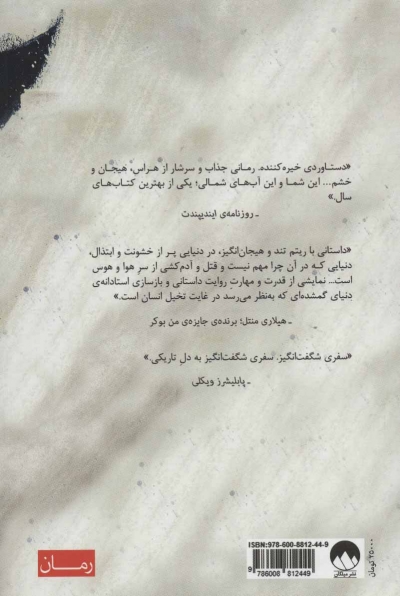 «دستاوردی خیره‌کننده. رمانی جذاب و سرشار از هراس، هیجان و
خشم... این شما و این آب‌های شمالی؛ یکی از بهترین کتاب‌های
سال.»
ـ روزنامه‌ی ایندیپندنت
«داستانی با ریتم تند و هیجان‌انگیز، در دنیایی پر از خشونت و ابتذال،
دنیایی که در آن چرا مهم نیست و قتل و آدم‌کشی از سر هوا و هوس
است... نمایشی از قدرت و مهارتِ روایت داستانی و بازسازی استادانه‌ی
دنیای گمشده‌ای که به‌نظر می‌رسد در غایت تخیل انسان است.»
ـ هیلاری منتل؛ برنده‌ی جایزه‌ی من بوکر
«سفری شگفت‌انگیز. سفری شگفت‌انگیز به دلِ تاریکی.»
ـ پابلیشرز ویکلی
رمان
ISBN:978-600-8812-44-9
9 786008 812449
نشر میلکان
۲۵۰۰۰ تومان